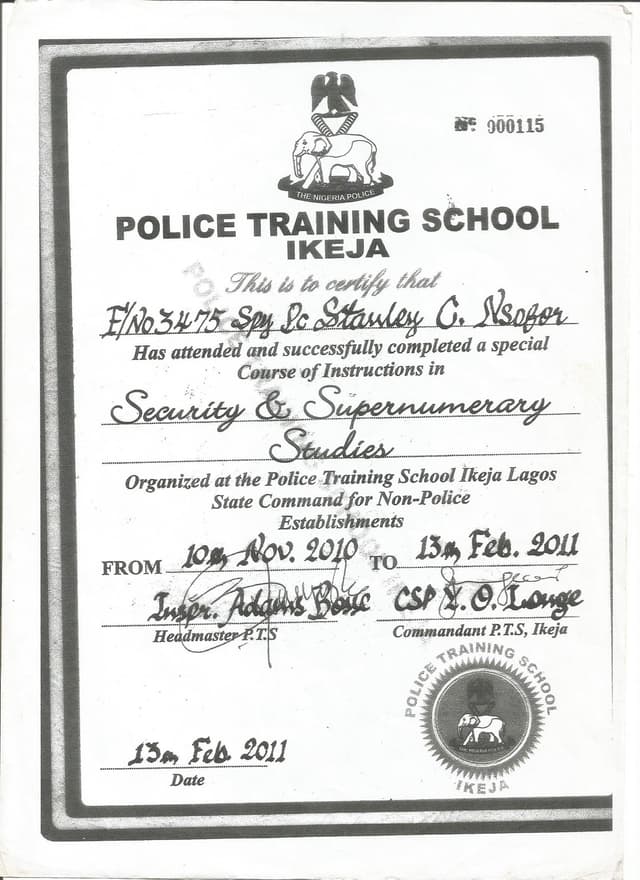 Nº 000115
THE NIGERIA POLICE
POLICE TRAINING SCHOOL
IKEJA
This is to certify that
F/No3475 Spy Pc Stanley C. Nsofor
Has attended and successfully completed a special
Course of Instructions in
Security & Supernumerary
Studies
Organized at the Police Training School Ikeja Lagos
State Command for Non-Police
Establishments
FROM 10th Nov. 2010 TO 13th Feb. 2011
Inspr. Adams CSP Y. O. Longe
Headmaster P.T.S Commandant P.T.S, Ikeja
POLICE TRAINING SCHOOL
THE NIGERIA POLICE
IKEJA
13th Feb. 2011
Date